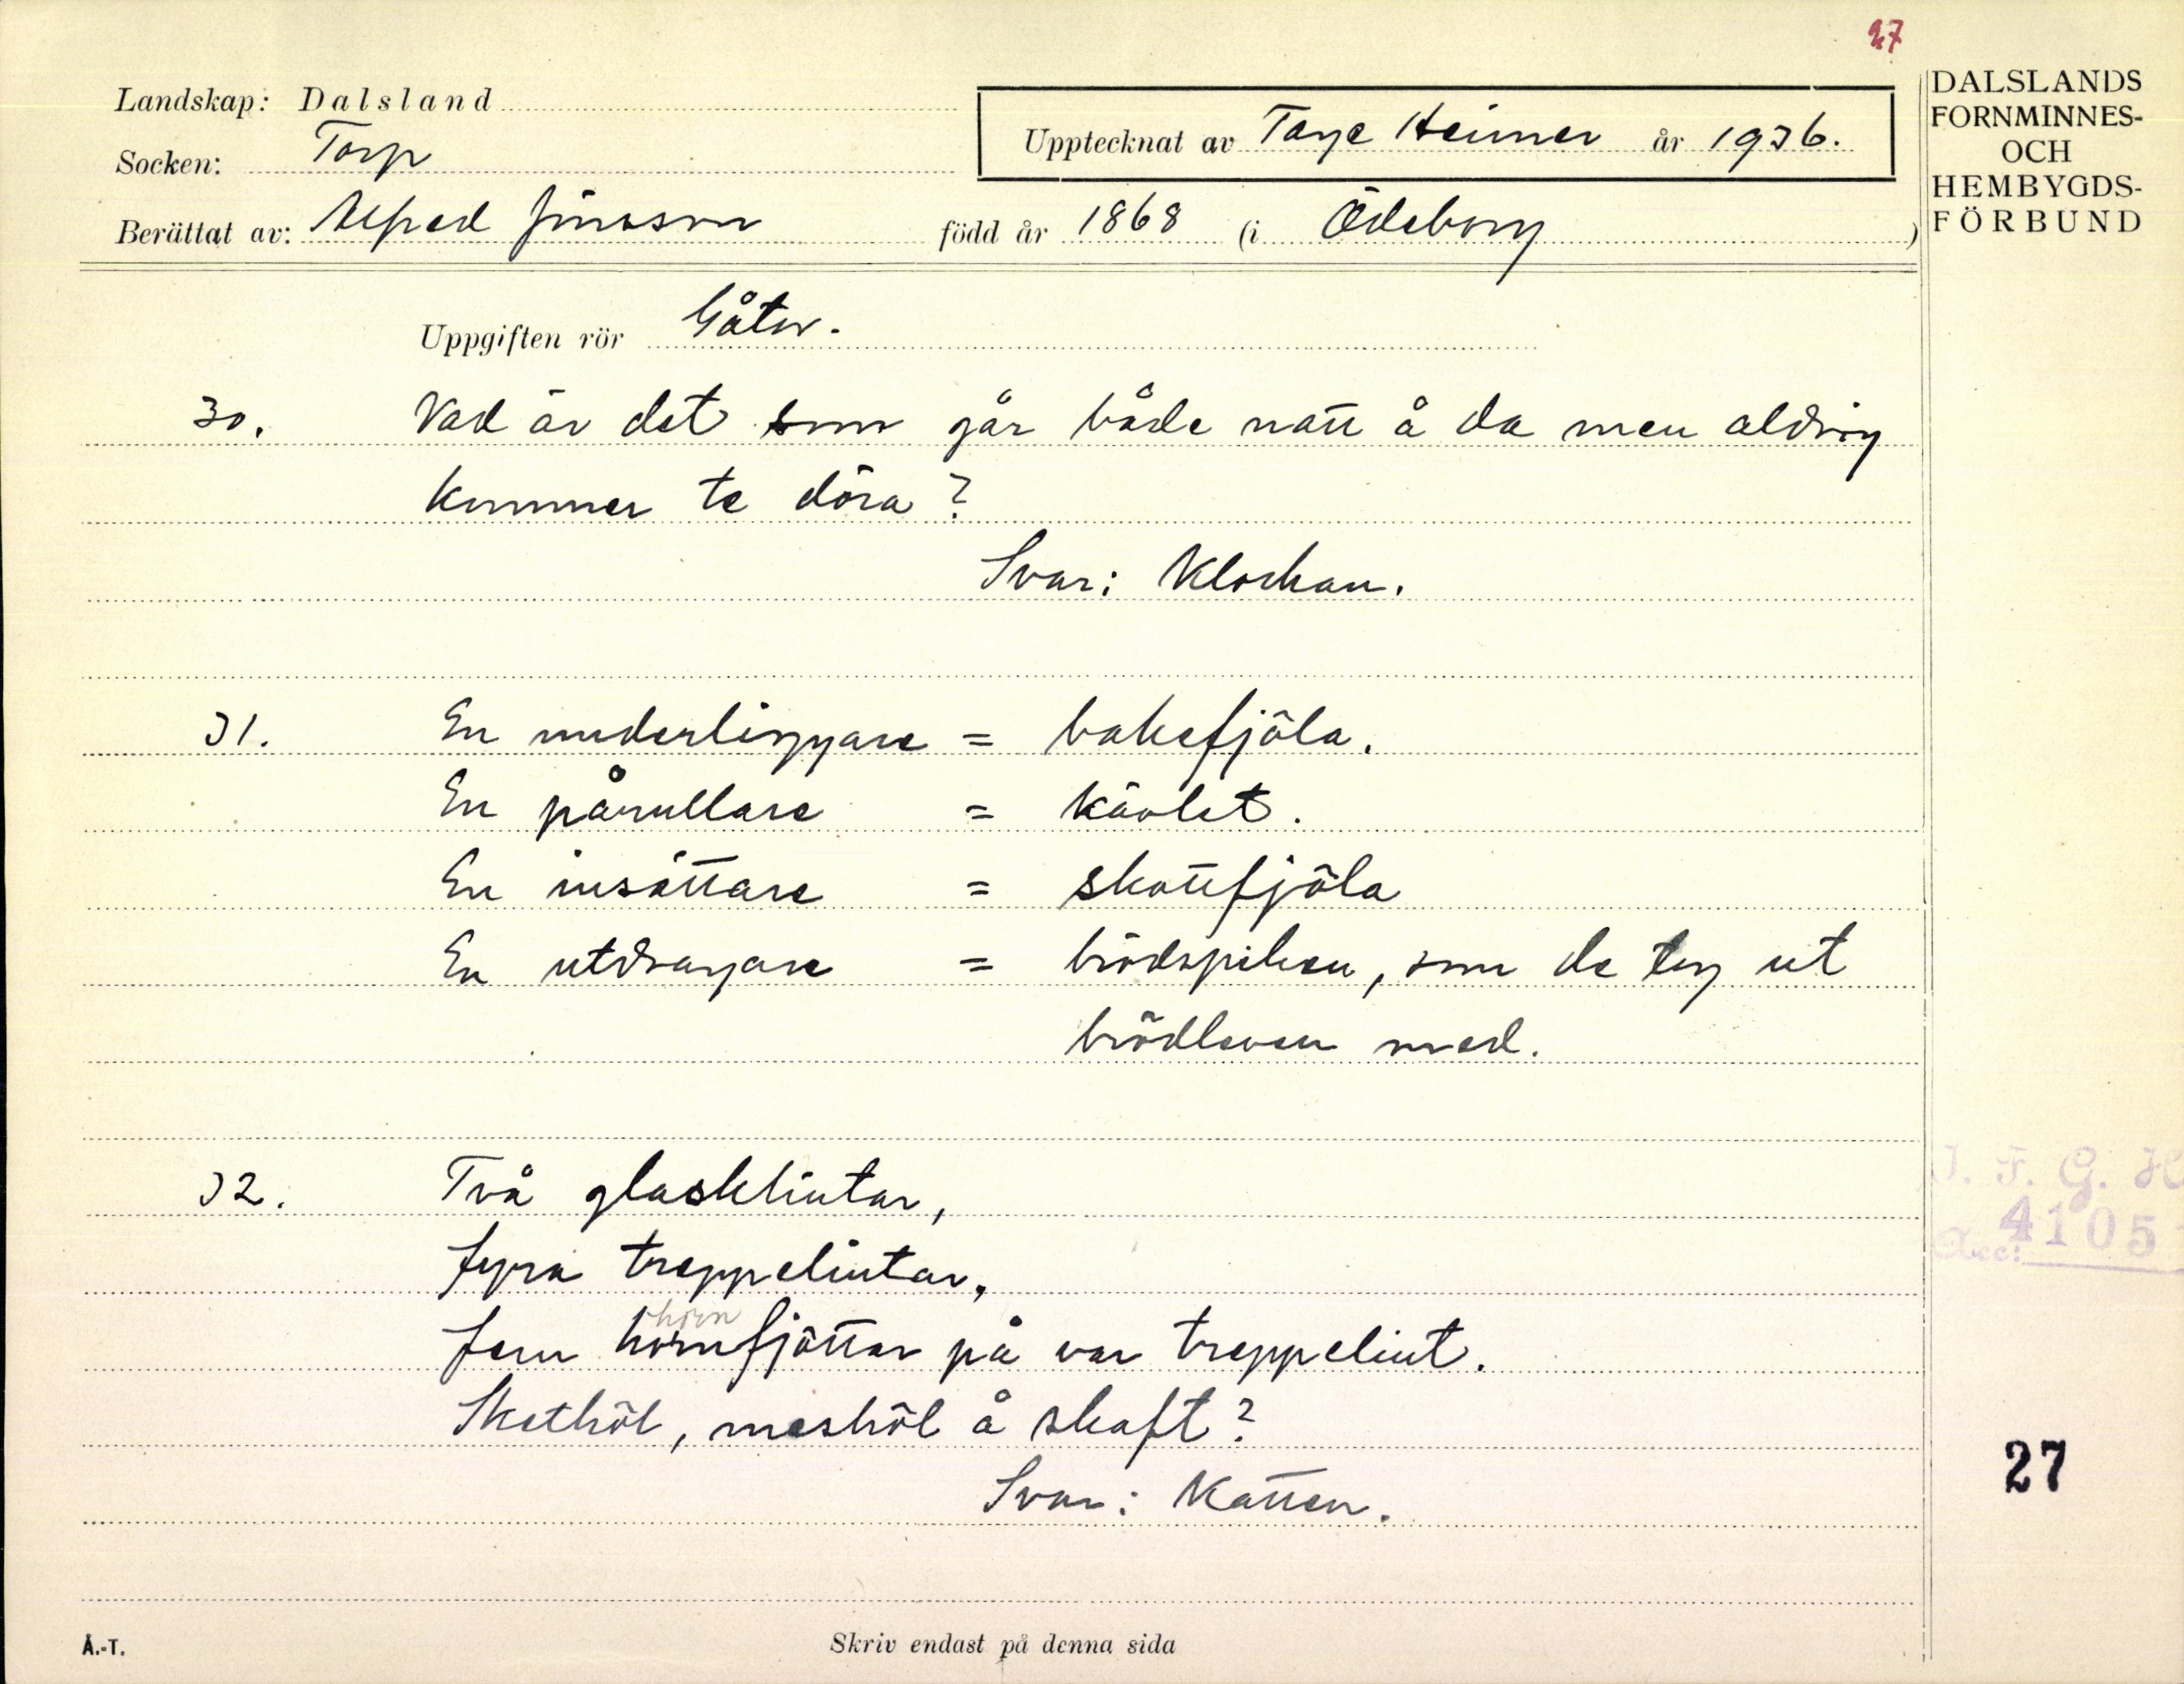 27
Landskap: Dalsland
Socken: Torp
Upptecknat av Tage Heimer år 1936.
Berättat av: Alfred Jonsson född år 1868 (i Ödeborg )
DALSLANDS
FORNMINNES-
OCH
HEMBYGDS-
FÖRBUND
Uppgiften rör Gåtor.
30. Vad är det som går både natt å da men aldrig
kommer te döra?
Svar: Klockan.
31. En underliggare = bakefjöla.
En pårullare = kävlet.
En insättare = skottfjöla
En utdragare = brödspiken, som de tog ut
brödleven med.
32. Två glasklintar,
fyra treppelintar,
horn
fem hornfjöttar på var treppelint.
Skethöl, meshöl å skaft?
Svar: Katten.
I. F. G. H
Acc: 4105
27
Å.-T.
Skriv endast på denna sida